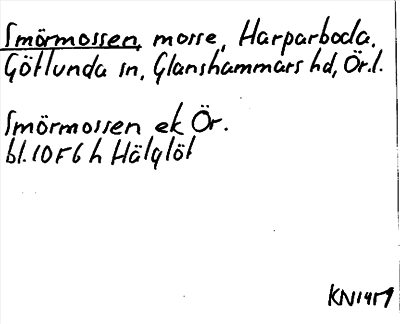 Smörmossen, mosse, Harparboda,
Götlunda sn, Glanshammars hd, Ör.l.
Smörmossen ek Ör.
bl.10F6h Hälglöt